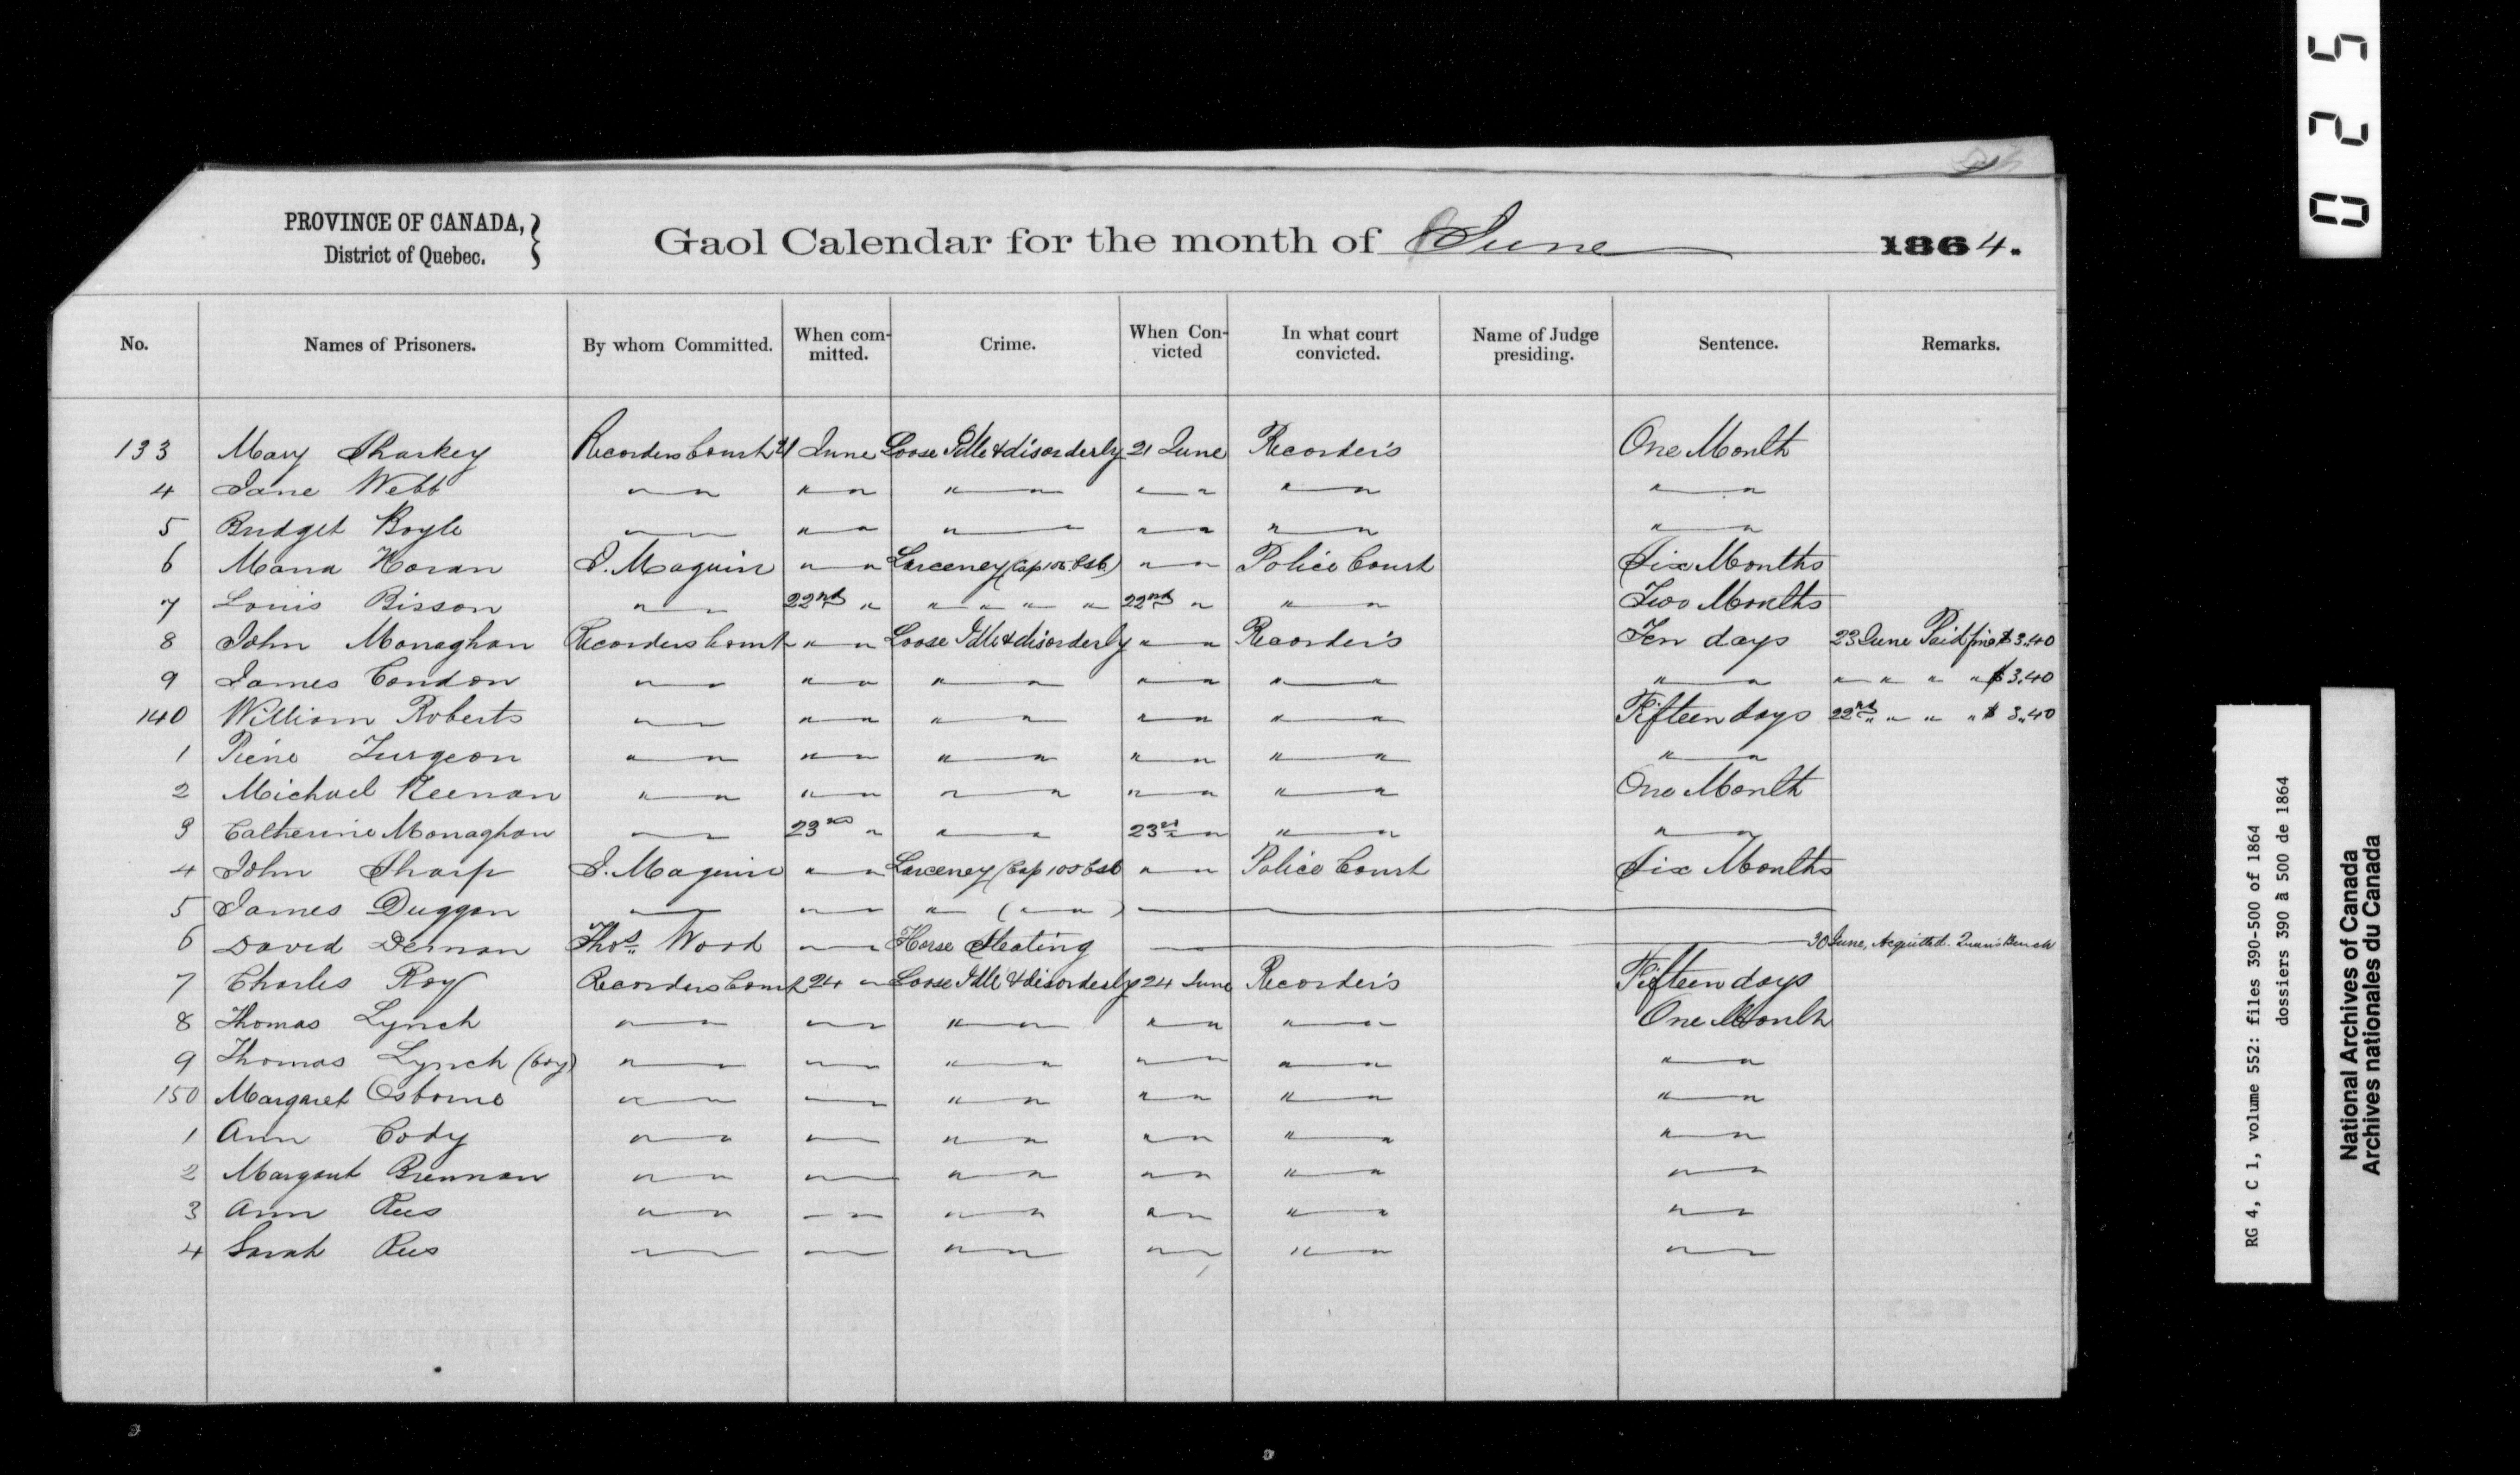 PROVINCE OF CANADA,
District of Quebec.
Gaol Calendar for the month of June 1864.
No. Names of Prisoners. By whom Committed. When committed. Crime. When Convicted In what court convicted. Name of Judge presiding. Sentence. Remarks.
133 Mary Sharkey Recorders Court 21 June Loose Idle & disorderly 21 June Recorder's One Month
4 Jane Webb " " " " " " " " " " " "
5 Bridget Boyle " " " " " " " " " " " "
6 Maria Horan J. Maguire " " Larceney (Cap 105 CSC) " " Police Court Six Months
7 Louis Bisson " " 22nd " " " " " 22nd " " " Two Months
8 John Monaghan Recorders Court " " Loose Idle & disorderly " " Recorder's Ten days 23 June Paid fine $3.40
9 James Condon " " " " " " " " " " " " " " " " $3.40
140 William Roberts " " " " " " " " " " Fifteen days 22nd " " " " $3.40
1 Pierre Turgeon " " " " " " " " " " " "
2 Michael Keenan " " " " " " " " " " One Month
3 Catherine Monaghan " " 23rd " " " 23rd " " " " "
4 John Sharp J. Maguire " " Larceney (Cap 105 CSC " " Police Court Six Months
5 James Duggan " " " " " ( " " )
6 David Dernan Thos. Wood " " Horse Stealing 30 June, Acquitted. Queen's Bench
7 Charles Roy Recorders Court 24 " Loose Idle & disorderly 24 June Recorder's Fifteen days
8 Thomas Lynch " " " " " " " " " " One Month
9 Thomas Lynch (boy) " " " " " " " " " " " "
150 Margaret Osborne " " " " " " " " " " " "
1 Ann Cody " " " " " " " " " " " "
2 Margaret Brennan " " " " " " " " " " " "
3 Ann Rees " " " " " " " " " " " "
4 Sarah Rees " " " " " " " " " " " "
025
RG 4, C 1, volume 552: files 390-500 of 1864
dossiers 390 à 500 de 1864
National Archives of Canada
Archives nationales du Canada